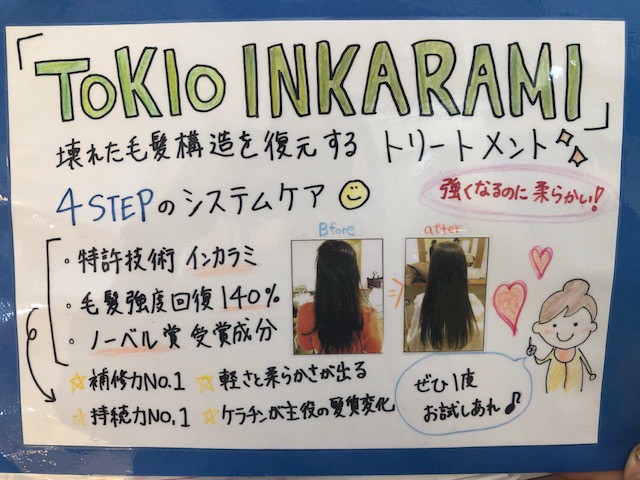 「TOKIO INKARAMI」
壊れた毛髪構造を復元する トリートメント
4STEPのシステムケア
強くなるのに柔らかい!
Bfore
after
・特許技術 インカラミ
・毛髪強度回復140%
・ノーベル賞 受賞成分
補修力NO.1 軽さと柔らかさが出る
持続力NO.1 ケラチンが主役の髪質変化
ぜひ1度
お試しあれ♪